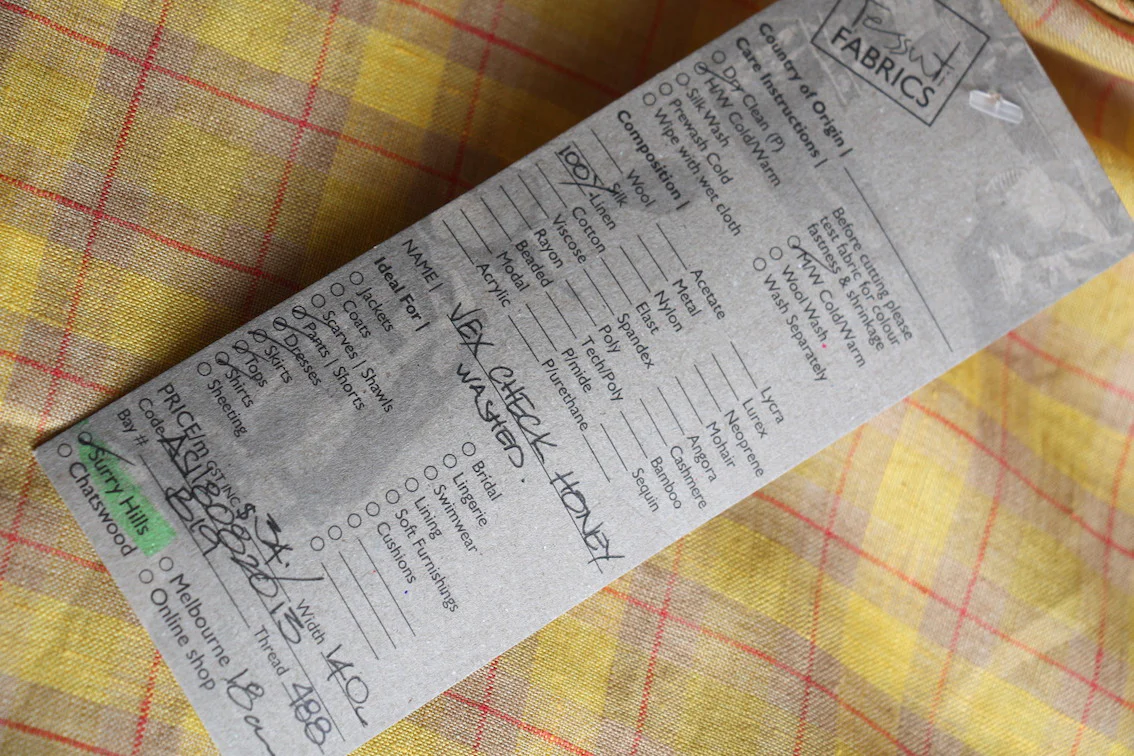 Tessuti
FABRICS
Country of Origin |
Care Instructions |
Dry Clean (P)
H/W Cold/Warm
Silk Wash
Prewash Cold
Wipe with wet cloth
Before cutting please
test fabric for colour
fastness & shrinkage
M/W Cold/Warm
Wool Wash
Wash Separately
Composition |
Wool
Silk
100% Linen
Cotton
Viscose
Rayon
Beaded
Modal
Acrylic
Acetate
Metal
Nylon
Elast
Spandex
Poly
Tech/Poly
P/mide
P/urethane
Lycra
Lurex
Neoprene
Mohair
Angora
Cashmere
Bamboo
Sequin
NAME | VEX CHECK HONEY
WASHED.
Ideal For |
Jackets
Coats
Scarves | Shawls
Pants | Shorts
Dresses
Skirts
Tops
Shirts
Sheeting
Bridal
Lingerie
Swimwear
Lining
Soft Furnishings
Cushions
PRICE/m GST INC $
Width 140
Code
Thread 488
Bay #
Surry Hills
Chatswood
Melbourne
Online shop